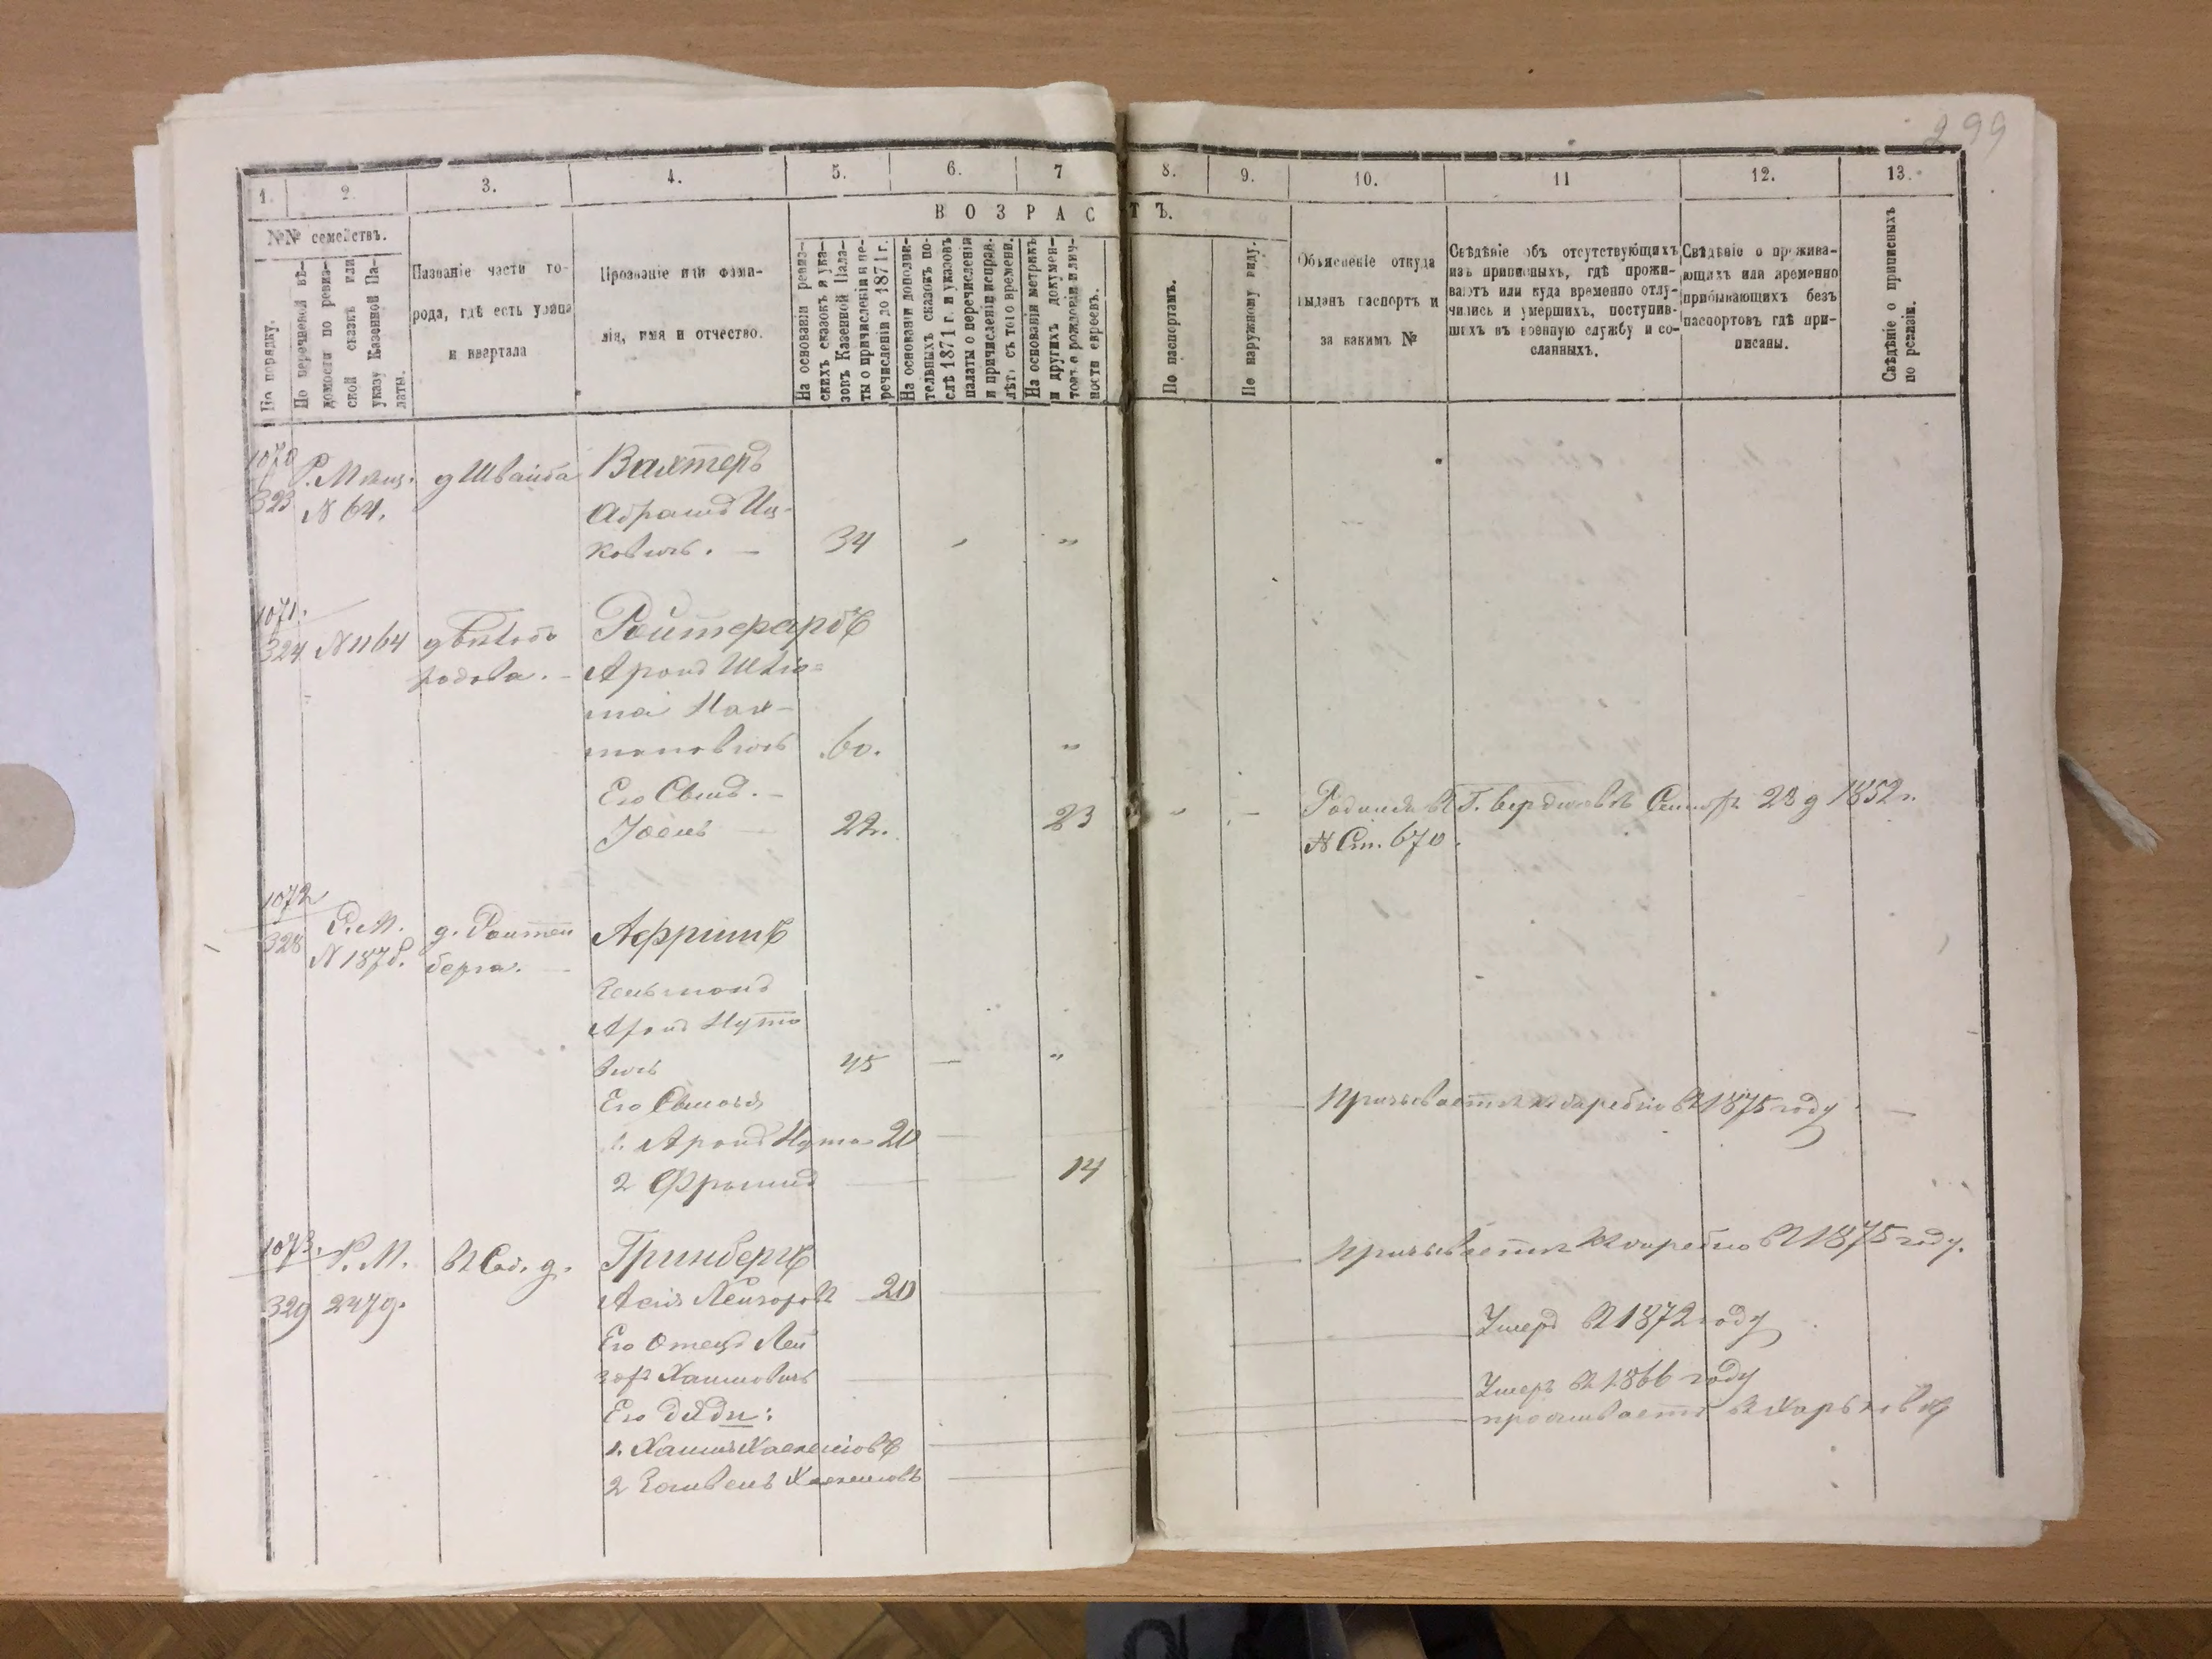 299
1. 2. 3. 4. 5. 6. 7 8. 9. 10. 11 12. 13.
№№ семействъ.
По порядку.
По перечневой вѣ-
домости по ревиз-
ской сказкѣ или
указу Казенной Па-
латы.
Названіе части го-
рода, гдѣ есть улица
и квартала
Прозваніе или фами-
лія, имя и отчество.
ВОЗРАСТЪ.
На основаніи ревиз-
скихъ сказокъ и ука-
зовъ Казенной Пала-
ты о причисленіи и пе-
речисленіи до 1871 г.
На основаніи дополни-
тельныхъ сказокъ по-
слѣ 1871 г. и указовъ
палаты о перечисленіи
и причисленіи исправ.
лѣт. съ того времени.
На основаніи метрикъ
и другихъ докумен-
товъ о рожденіи и лич-
ности евреевъ.
По паспортамъ.
По наружному виду.
Объясненіе откуда
выданъ паспортъ и
за какимъ №
Свѣдѣніе объ отсутствующихъ
изъ приписныхъ, гдѣ прожи-
ваютъ или куда временно отлу-
чились и умершихъ, поступив-
шихъ въ военную службу и со-
сланныхъ.
Свѣдѣніе о прожива-
ющихъ или временно
прибывающихъ безъ
паспортовъ гдѣ при-
писаны.
Свѣдѣніе о приписныхъ
по ревизіи.
1070 Р. Мѣщ. д Швайба Вахтеръ
323 N 64. Абрамъ Иц-
ковичь. — 34 " "
1071.
324 N 1164 Ройтерарбъ
Аронъ Шлio=
ма Нах-
мановичь 60. "
Его Сынъ. —
Іосель — 22. 23 " — Родился въ Г. Бердичевѣ Сентябр 23 д 1852 г.
N Ст. 670.
1072
328 Р. М. д. Ройтен Афришъ
N 187 берга.
Зельманъ
Аронъ Нутo
вичь 45 — "
Его Сыновья
1. Аронъ Нута 20 Призывается къ жеребью въ 1875 году
2 Фроимъ 14
1073. Р. М. въ Соб. д. Гринбергъ Призывается къ жеребью въ 1875 году.
329 2479. Лейзоровъ 20
Его Отецъ Лей
зоръ Хаимовичь Умеръ въ 1872 году
Его дяди:
1. Хаимъ Умеръ въ 1866 году
2 проживаетъ въ Харьковѣ